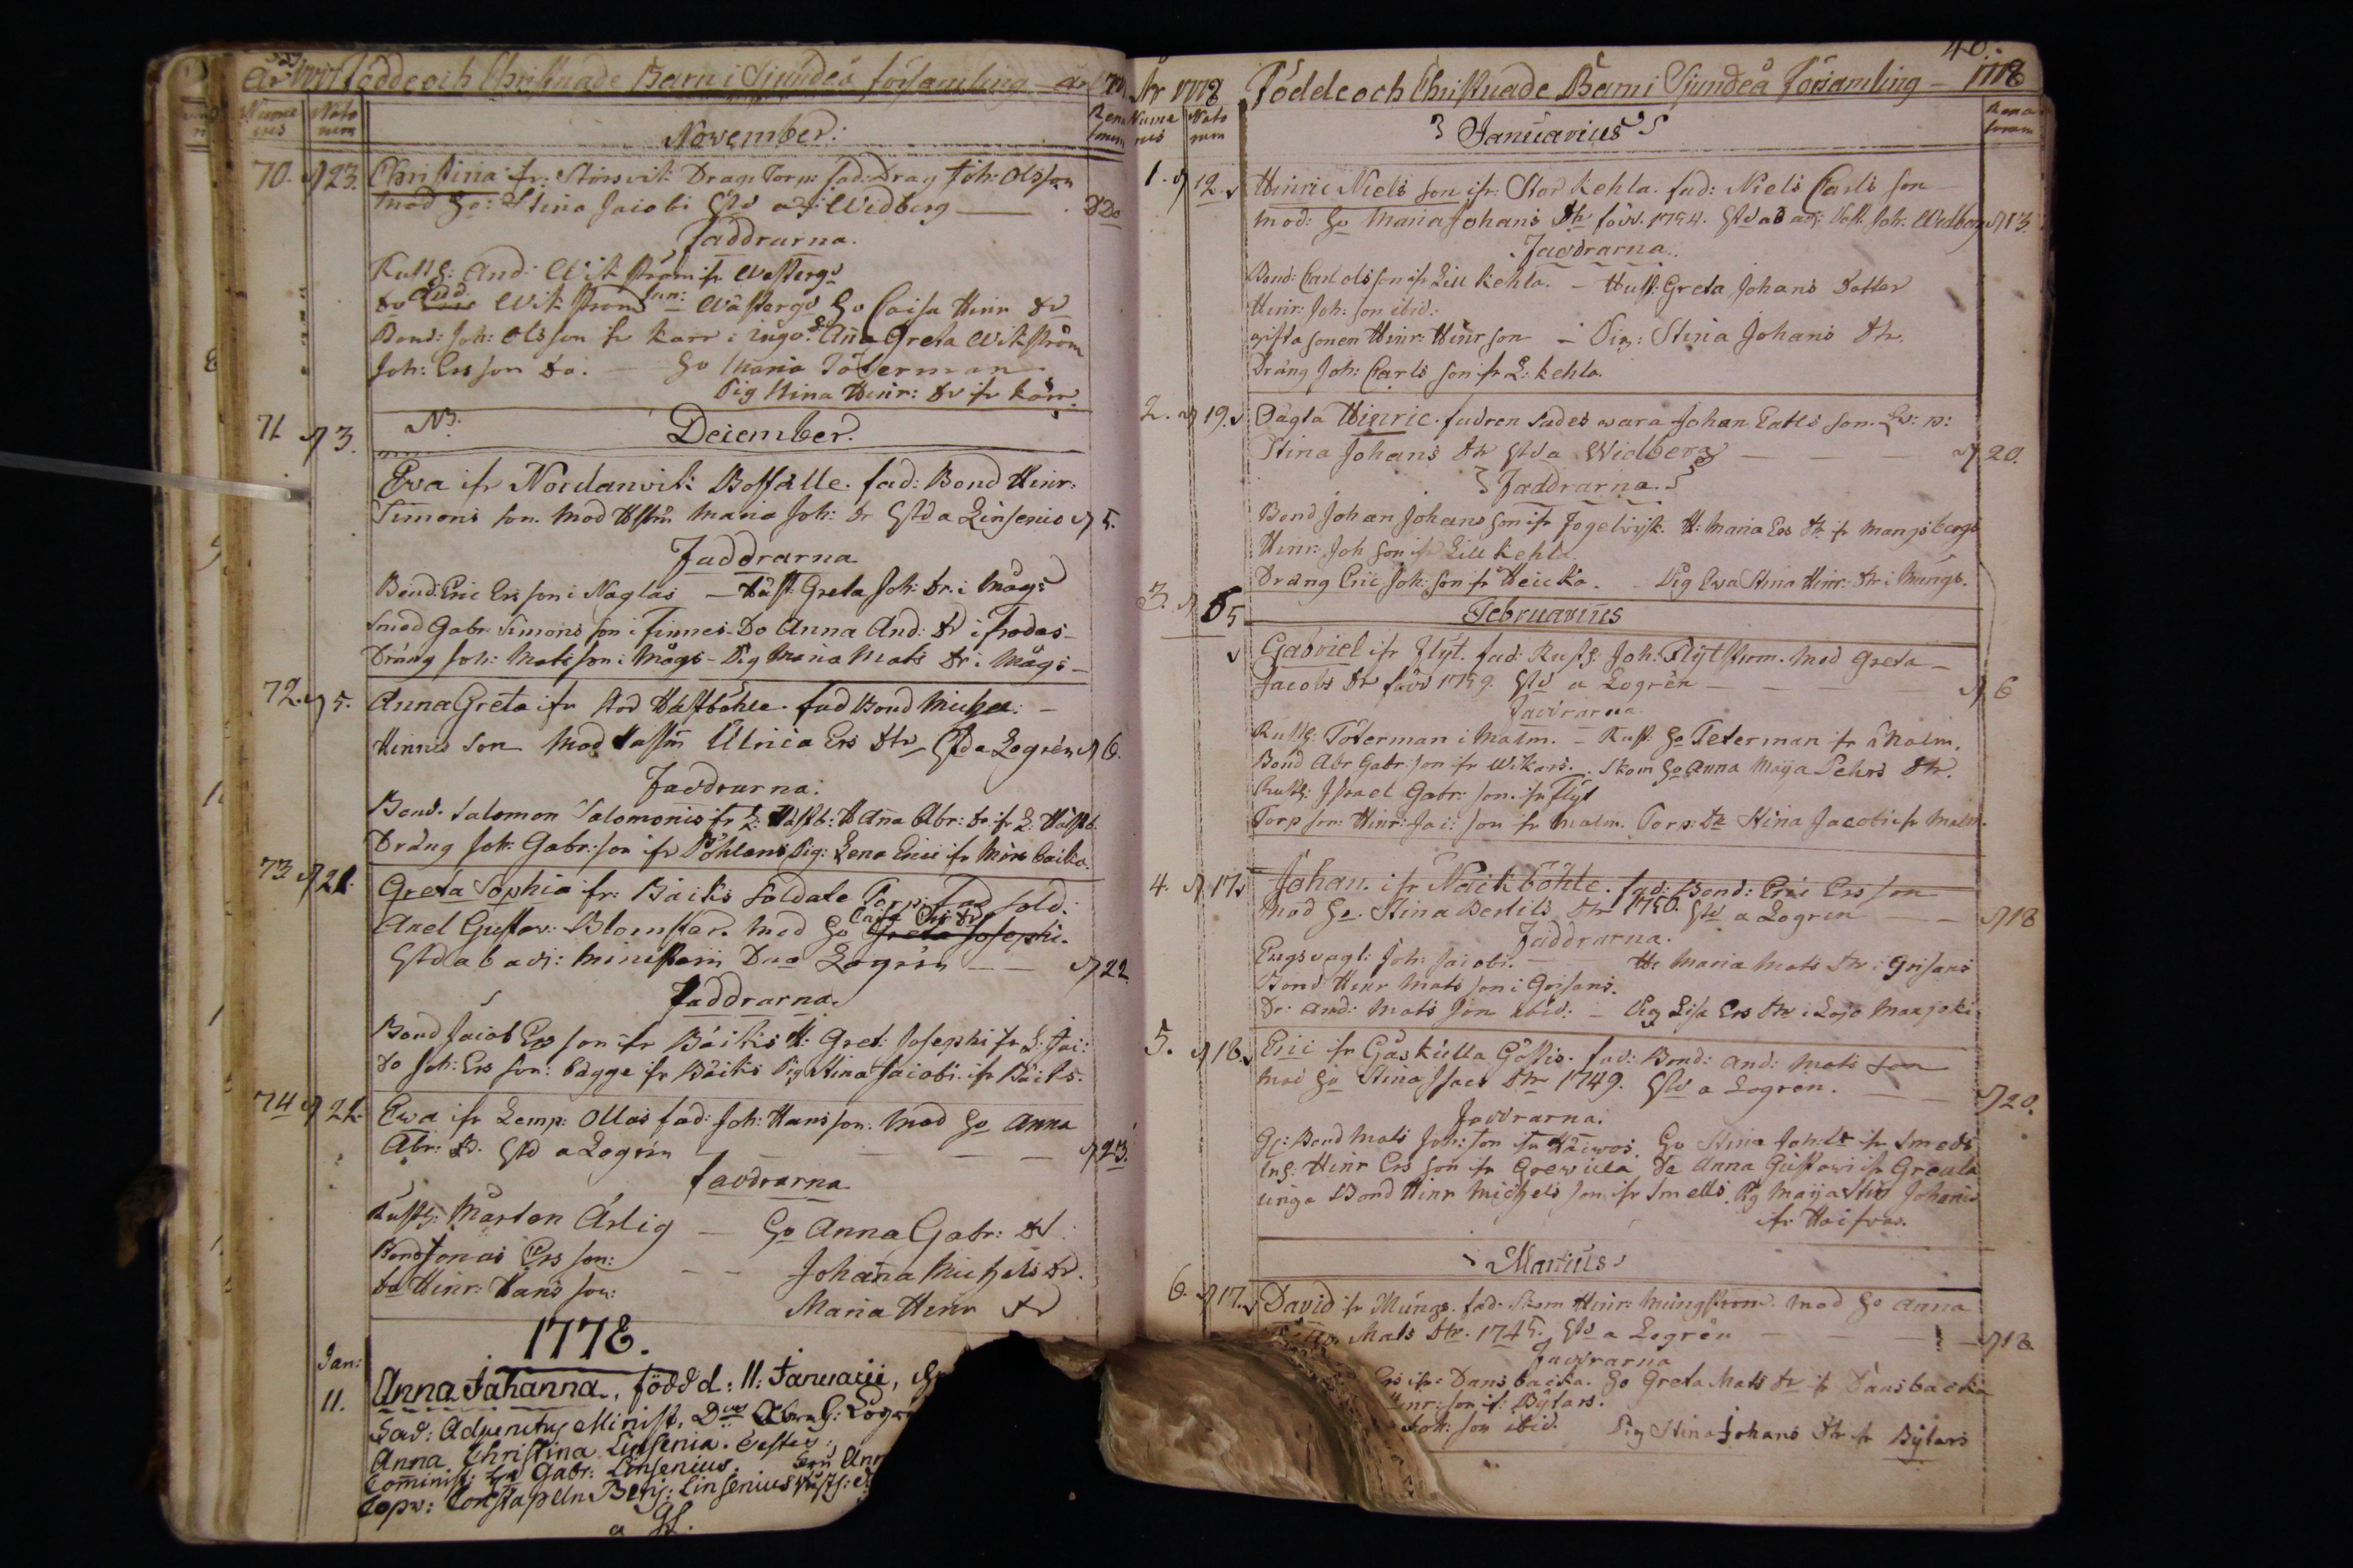 År 1777 Födde och Christnade Barn i Sjundeå församling
Nume rus Nato rum
November:
70. d 23. Christina fr: Störsvik Drag: Torp: fad: Drag Joh: Olsson
mod ho: Stina Jacobi Gtd a: Widberg
Faddrarna.
Rusth: And: Wikström fr Westerg:
Do And: Wikström Wästergd Ho Caisa Hinr Dr
Bond: Joh: Olsson fr Karr i Ingo: Anna Greta Wikström
Joh: Ersson Do. Ho Maria Töterman
Pig Stina Hinr: Dr fr Karr:
71 d 3. December.
Ewa ifr Nordanvik Boställe. fad: Bond Hinr:
Simons son. Mod Maria Joh: Dr Gtd a Linsenio d 5.
Faddrarna
Bond: Eric Ersson i Naglas Hust: Greta Joh: Dr. i Mågs
Smed Gabr: Simons son i Finnes Do Anna And: Dr i Frodas
Dräng Joh: Mats son i Mågs Pig Maria Mats Dr i Mågs
72. d 5. Anna Greta ifr Stor Hästböhle. fad Bond Michel:
Hinrics son Mod Ulrica Ers Dtr Gtd a Logrén d 6.
Faddrarna:
Bond. Salomon Salomonis fr L: Hästb: H Anna Abr: Dr fr L: Hästb.
Dräng Joh: Gabr: son ifr Pig: Lena Erici fr
73 d 21. Greta Sophia fr: Bäcks Soldate Torp: fad Sold:
Axel Gustav: Blomster. Mod Ho Greta Josephi.
Gtd ab adj: Ministerii Dno Logrén d 22
Faddrarna.
Bond Jacob Ersson ifr Bäcks H: Gret: Josephi fr
Do Joh: Ers son: bägge fr Bäcks Pig Stina Jacobi ifr Bäcks.
74 d 21. Ewa ifr Lemp: Ollas fad: Joh: Hansson. Mod Ho Anna
Abr: D. Gtd a Logrén d 23.
Faddrarna
Rusth: Mårten Ärlig Ho Anna Gabr: Dr
Bond Jonas Ersson: Johanna Michels Dr.
Do Hinr: Hans son: Maria Hinr Dr
1778.
Jan:
11. Anna Johanna, född d: 11: Januarii,
Fad: Adjunctus Minist. Dnus Abrah: Logrén
Anna Christina Linsenia. Testes:
Cominist: Hr Gabr: Linsenius. Fru Ann
Copv: Constapeln Benj: Linsenius Rusth:
År 1778 Födde och Christnade Barn i Sjundeå Församling 1778
Nume rus Nato rum Rena torum
Januarius
1. d 12. Hinric Niels son ifr: Stor Kehla. fad: Niels Carls son
mod: Ho Maria Johans Dtr född. 1754. Gtd ab adj: Joh: Widberg d 13.
Faddrarna.
Bond: Carl Olsson ifr Lill Kehla. Hust: Greta Johans Dotter
Hinr: Joh: son ibid:
gifta sonen Hinr: Hinr son Pig: Stina Johans Dtr.
Dräng Joh: Carls son ifr L: Kehla.
2. d 19. Oägta Hinric. fadren sades wara Johan Carls son.
Stina Johans Dtr Gtd a Widberg d 20.
Faddrarna.
Bond Johan Johans son ifr Fogelwijk. H: Maria Ers Dtr fr Mangsbergs
Hinr: Joh son ifr Lill Kehla
Dräng Eric Joh: son fr Heicka. Pig Ewa Stina Hinr: Dtr i Mungs.
3. d 5 Februarius
Gabriel ifr Flyt. fad: Rusth. Joh: Flytström. Mod Greta
Jacobs Dtr född 1759. Gtd a Logrén d 6
Faddrarna
Rusth: Töterman i Malm. Rust: Ho Töterman fr Malm.
Bond Abr Gabr: son fr Wikars. Skom Ho Anna Maija Pehrs Dtr.
Rusth: Israel Gabr: son. ifr Flyt
Torp son: Hinr: Jac: son fr Malm. Torp: Dr Stina Jacobi fr Malm.
4. d 17. Johan. ifr Näckböhle. fad: Bond: Eric Ersson
Mod Ho. Stina Bertils Dtr 1750. Gtd a Logren d 18
Faddrarna.
Joh: Jacobi. H: Maria Mats Dtr i Grisans
Bond Hinr Mats son i Grisans.
Dr: And: Mats son ibid: Pig Lisa Ers Dtr i Lojo
5. d 18. Eric ifr Gåskulla Göstis. fad: Bond: And: Mats son
Mod Ho Stina Isacs Dtr 1749. Gtd a Logren. d 20.
Faddrarna.
Bond Mats Joh: son ifr Ho Stina Joh: Dr ifr Smeds
Hinr Ers son ifr Grewula Do Anna Gustavi ifr Grewla
unga Bond Hinr Michels son ifr Smeds. Pig Maija Stin Johans
ifr
Martius
6. d 17. David fr Mungs. fad. Skom Hinr: Mungström. Mod Ho Anna
Mats Dtr. 1745. Gtd a Logrén d 18
Faddrarna
ifr: Dansbacka. Ho Greta Mats Dr fr Dansbacka
Hinr: son if: Bylars.
Joh: son ibid. Pig Stina Johans Dtr fr Bylars